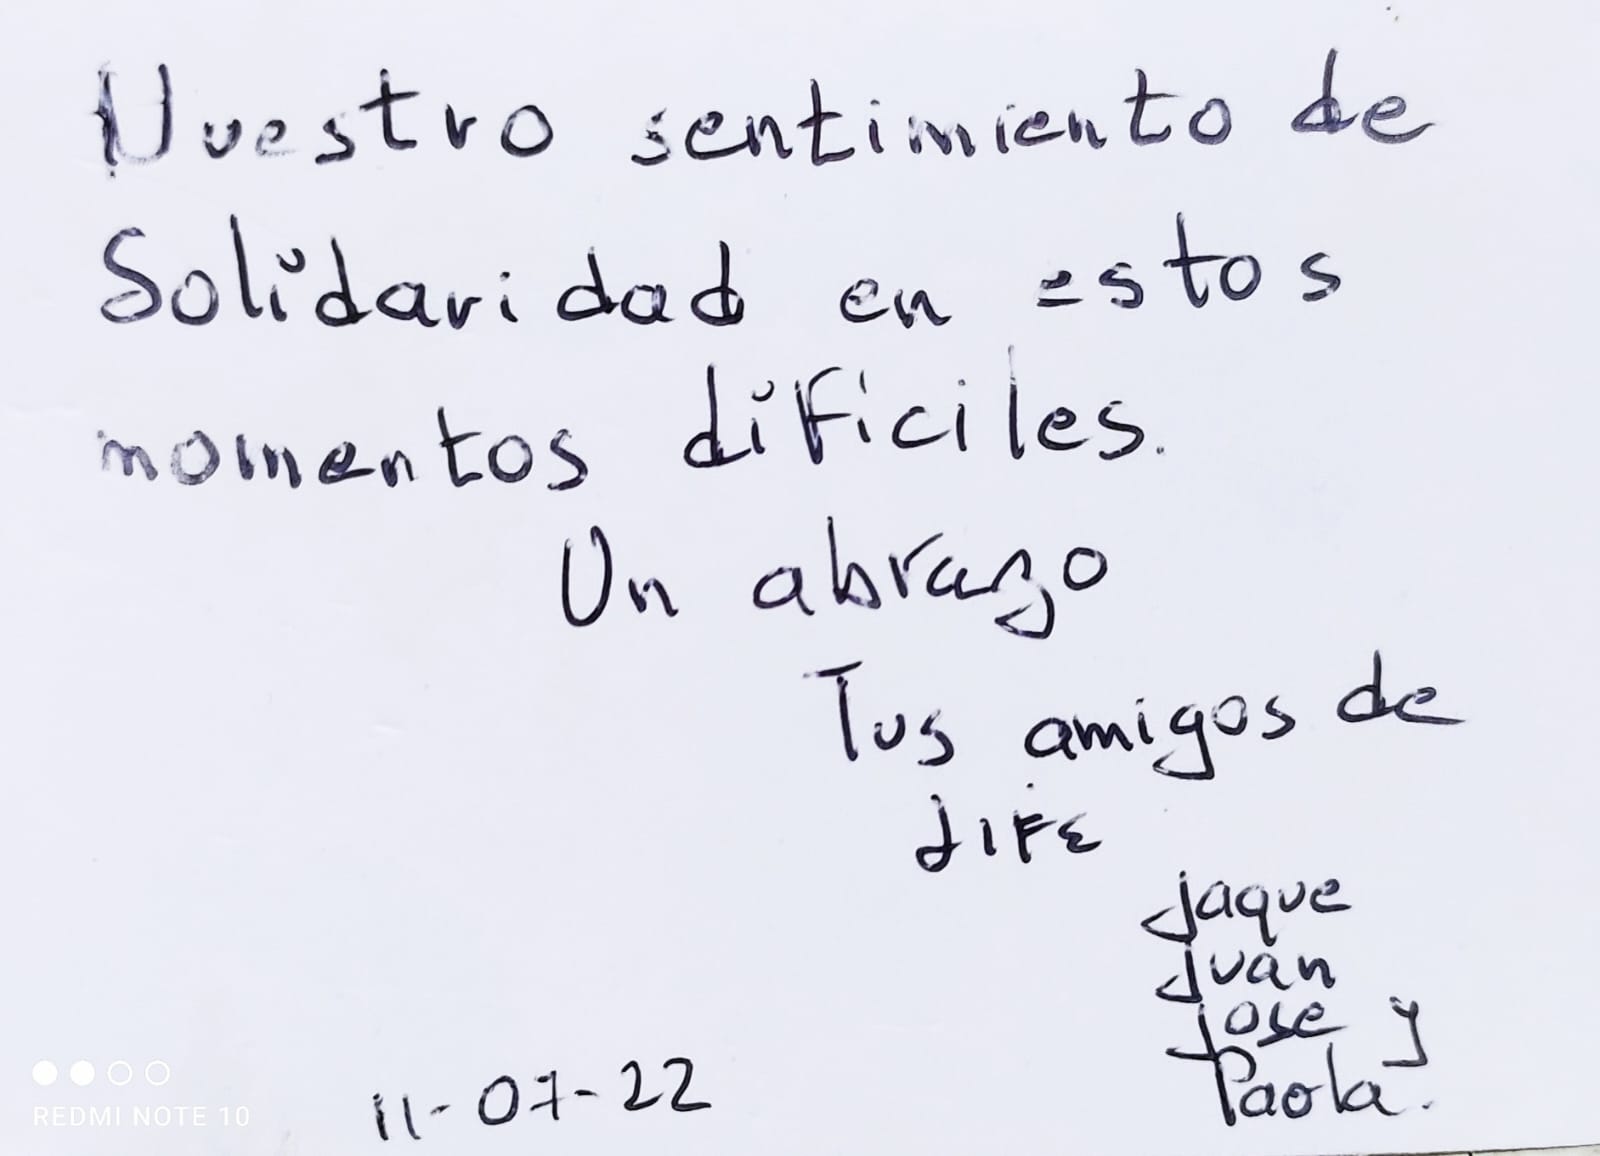 Nuestro sentimiento de
Solidaridad en estos
momentos difíciles.
Un abrazo
Tus amigos de
dIFE
Jaque
Juan
Jose y
Paola.
11-07-22
REDMI NOTE 10